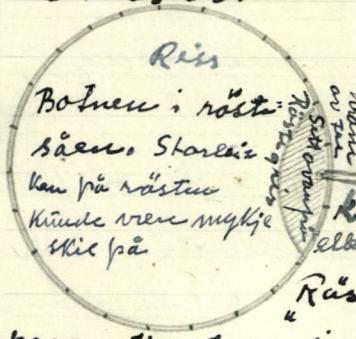 Riss
Botnen i röste-
såen. Storlei-
ken på rösten
kunde vera mykje
skil på
Röstegris
Sett ovanpå
"Räs